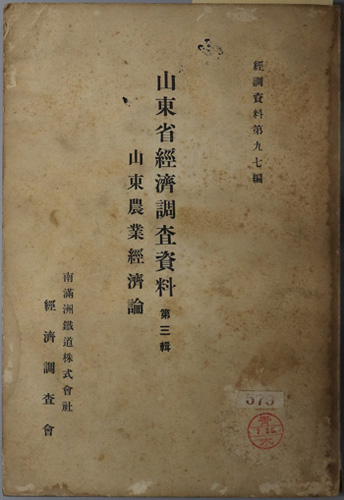 經調資料第九七編
山東省經濟調査資料 第三輯
山東農業經濟論
南滿洲鐵道株式會社
經濟調査會
573